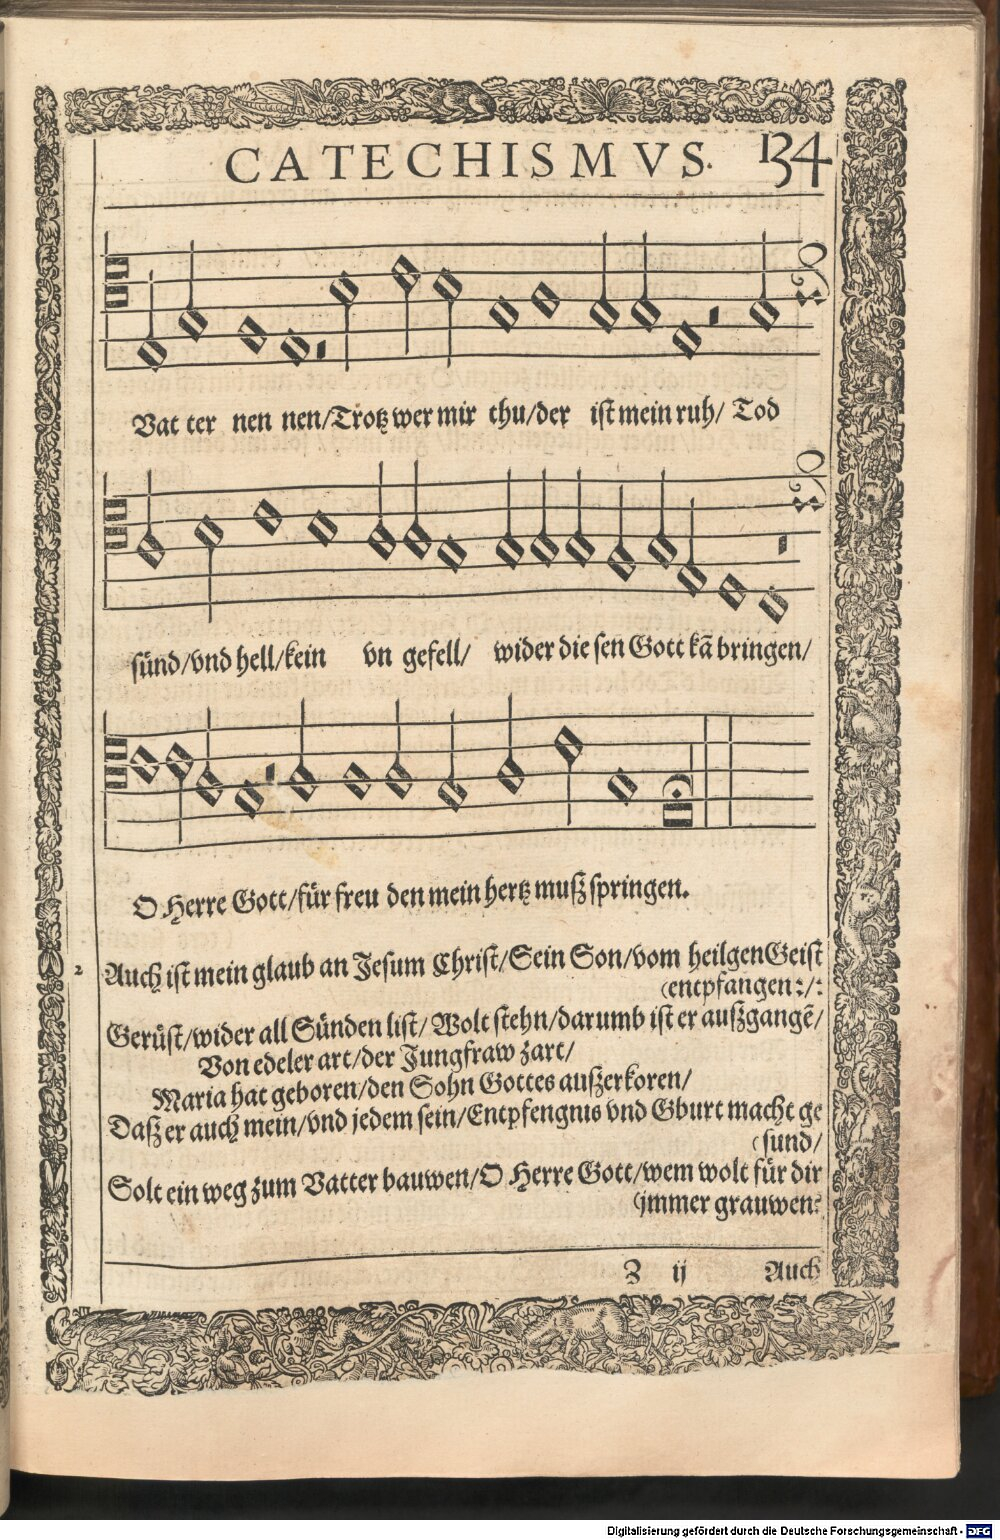 CATECHISMVS. 134
Vat ter nen nen/Trotz wer mir thu/der ist mein ruh/ Tod
sünd/vnd hell/kein vn gefell/ wider die sen Gott kã bringen/
O Herre Gott/für freu den mein hertz muß springen.
2 Auch ist mein glaub an Jesum Christ/Sein Son/vom heilgen Geist
(entpfangen:/:
Gerüst/wider all Sünden list/ Wolt stehn/darumb ist er außgangẽ/
Von edeler art/der Jungfraw zart/
Maria hat geboren/den Sohn Gottes außerkoren/
Daß er auch mein/vnd jedem sein/Entpfengnis vnd Gburt macht ge
(sund/
Solt ein weg zum Vatter bauwen/O Herre Gott/wem wolt für dir
(jmmer grauwen?
Z ij Auch
Digitalisierung gefördert durch die Deutsche Forschungsgemeinschaft - DFG